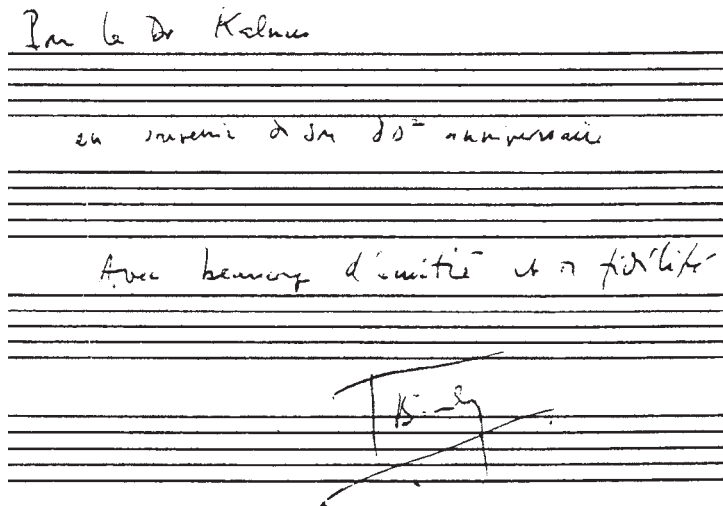 Pour le Dr Kalmus
en souvenir de son 80e anniversaire
Avec beaucoup d'amitié et de fidélité